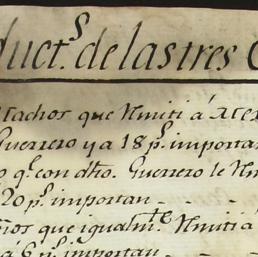 duct.s de las tres
Machos que Rmití á
Guerrero y a 18 p.s importan
q.e con dho. Guerrero le R
20 p.s importan
que igualm.te Rmití á
á 6 p.s importan